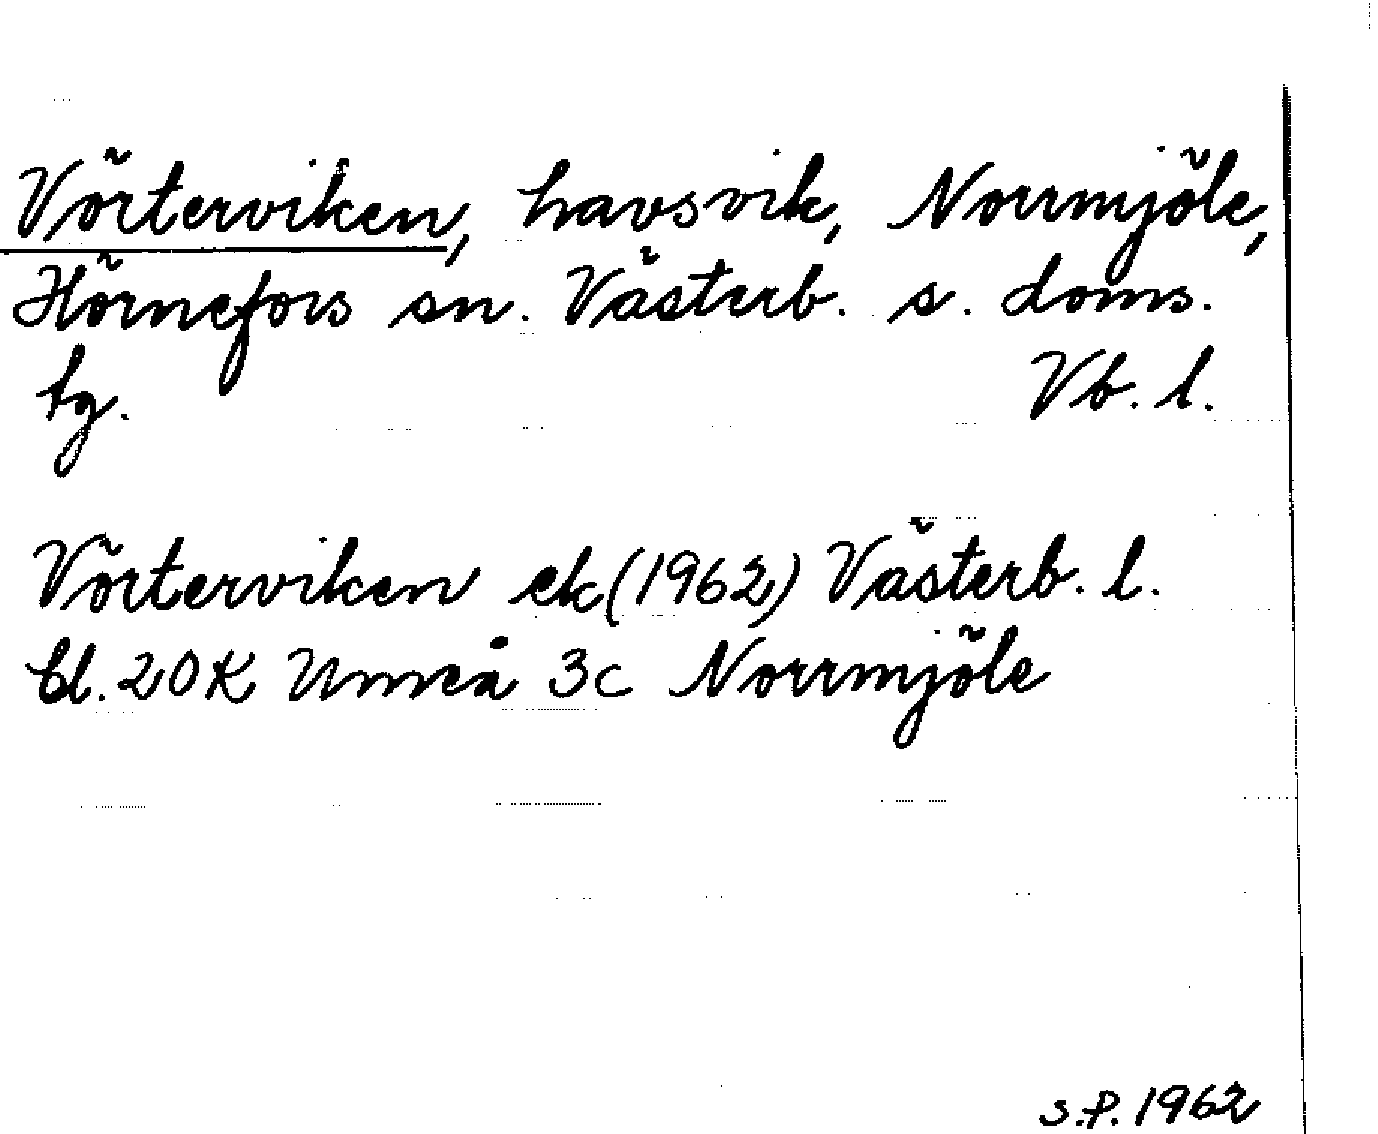 Vörterviken, havsvik, Norrmjöle,
Hörnefors sn. Västerb. s. doms.
tg. Vb. l.
Vörterviken ek (1962) Västerb. l.
bl. 20K Umeå 3c Norrmjöle
S.P. 1962